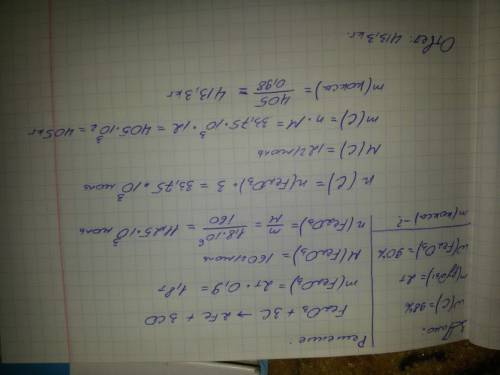 Дано:
w(C)=98%
m(руды)=2т
w(Fe₂O₃)=90%
m(кокса)-?
Решение:
Fe₂O₃ + 3C → 2Fe + 3CO
m(Fe₂O₃)= 2т · 0,9 = 1,8т
M(Fe₂O₃)= 160 г/моль
n(Fe₂O₃)= m/M = 1,8·10⁶/160 = 11,25·10³ моль
n(C)= n(Fe₂O₃)·3 = 33,75·10³ моль
M(C)= 12 г/моль
m(C)= n·M = 33,75·10³·12 = 405·10³г = 405кг
m(кокса)= 405/0,98 = 413,3кг
Ответ: 413,3 кг.